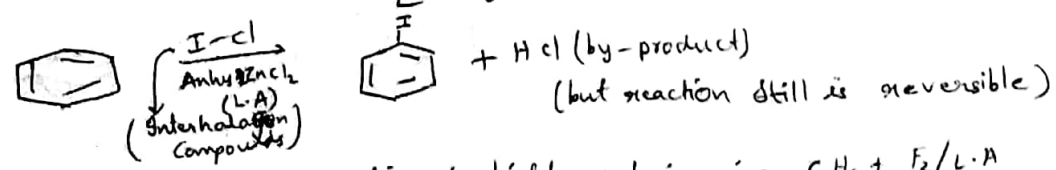 I-cl
Anhy ZnCl₂
(L.A)
(Interhalogen
Compounds)
I
+ H cl (by-product)
(but reaction still is reversible)
F₂/L.A